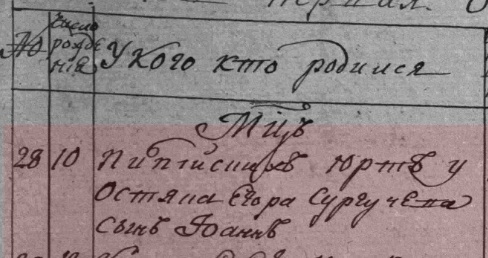 № число рождения У кого кто родился
Мцъ
28 10 юртъ у
Остяка Егора Сургучева
сынъ Иоаннъ